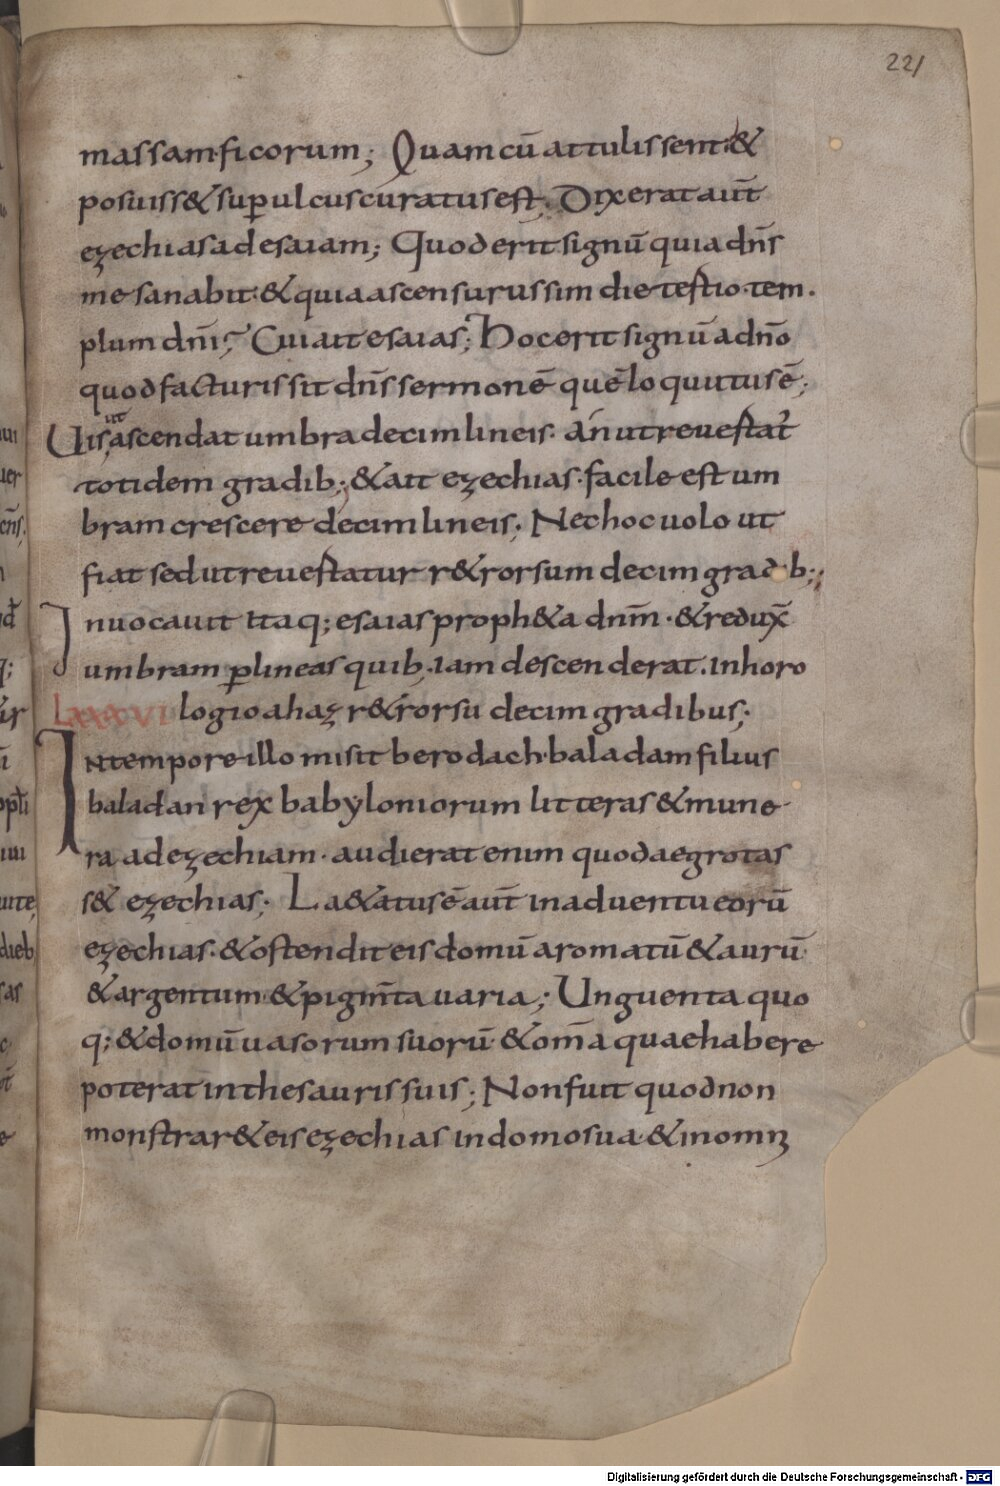 221
massam ficorum; Quam cū attulissent &
posuiss& sup ulcus curatus est. Dixerat aūt
ezechias ad esaiam; Quod erit signū quia dn̄s
me sanabit· & quia ascensurus sim die tertio tem·
plum dn̄i; Cui ait esaias; Hoc erit signū a dn̄o
quod facturis sit dn̄s sermonē quē loquutus ē;
Uis ut ascendat umbra decim lineis· an ut reuertat᷑
totidem gradib; & ait ezechias· facile est um
bram crescere decim lineis; Nec hoc uolo ut
fiat sed ut reuertatur r&rorsum decim gradib;
Inuocauit itaq; esaias proph&a dnm̄· & redux̄
umbram ꝑ lineas quib; iam descenderat· in horo
LXXXVI logio ahaz r&rorsū decim gradibus;
In tempore illo misit berodach baladam filius
baladan rex babyloniorum litteras & mune
ra ad ezechiam· audierat enim quod aegrotas
s& ezechias; La&atus ē aūt in aduentu eorū
ezechias· & ostendit eis domū aromatū & aurū
& argentum & pigm̄ta uaria; Unguenta quo
q; & domū uasorum suorū & om̄a quae habere
poterat in thesauris suis; Non fuit quod non
monstrar& eis ezechias in domo sua & in omnı